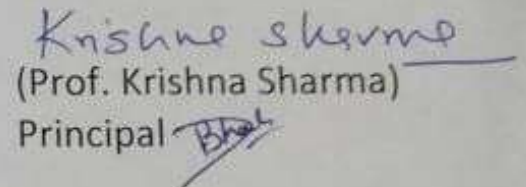 Krishna Sharma
(Prof. Krishna Sharma)
Principal